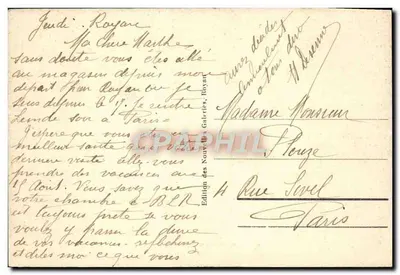 Jeudi - Royan
Ma chère Marthe
sans doute vous êtes allé
au magasin depuis mon
départ pour Royan où je
suis depuis le 17. je rentre
lundi soir à Paris
J'espère que vous
meilleure santé
dernière visite allez-vous
prendre des vacances
15 Août. Vous savez que
votre chambre à B.L.R.
est toujours prête si vous
voulez y passer la durée
de vos vacances. réfléchissez
et dites moi ce que vous
avez décidé
CARTHAPHIL
Edition des Nouvelles Galeries, Royan
Madame Monsieur
4 Rue
Paris